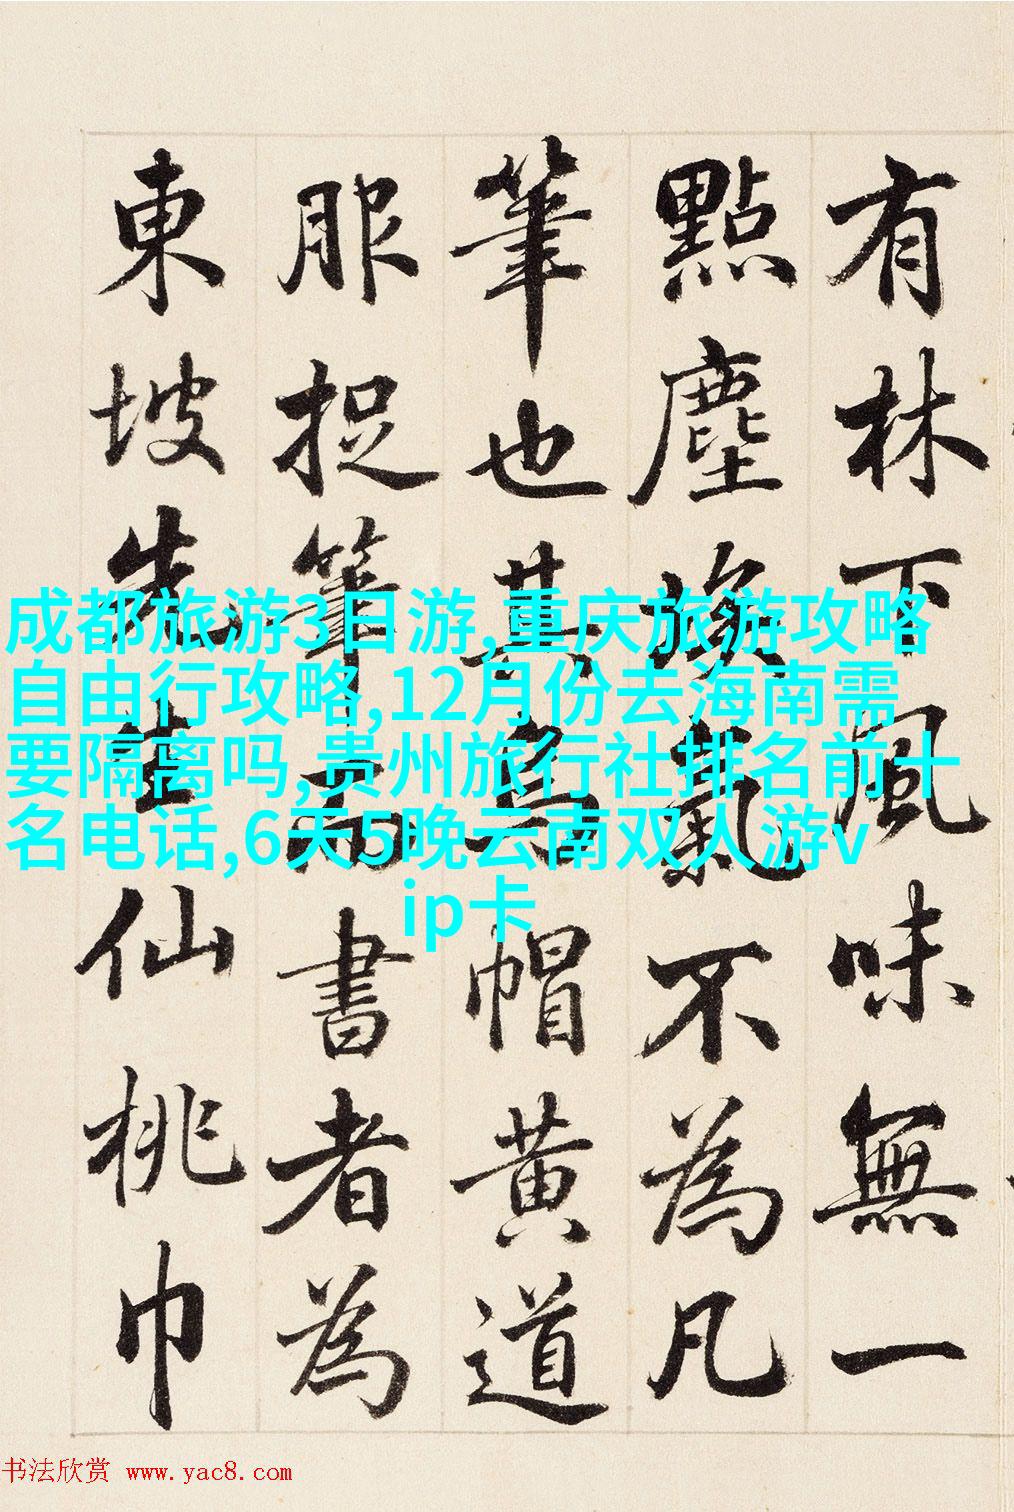 有林下風味無一
點塵埃氣不為凡
筆也其烏帽黃道
服捉筆而書者為
東坡先生仙桃巾
成都旅游3日游,重庆旅游攻略
自由行攻略,12月份去海南需
要隔离吗,贵州旅行社排名前十
名电话,6天5晚云南双人游v
ip卡
书法欣赏 www.yac8.com